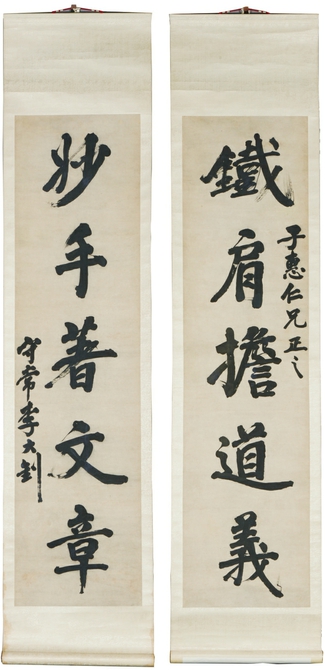 鐵肩擔道義
子惠仁兄正之
妙手著文章
守常李大釗